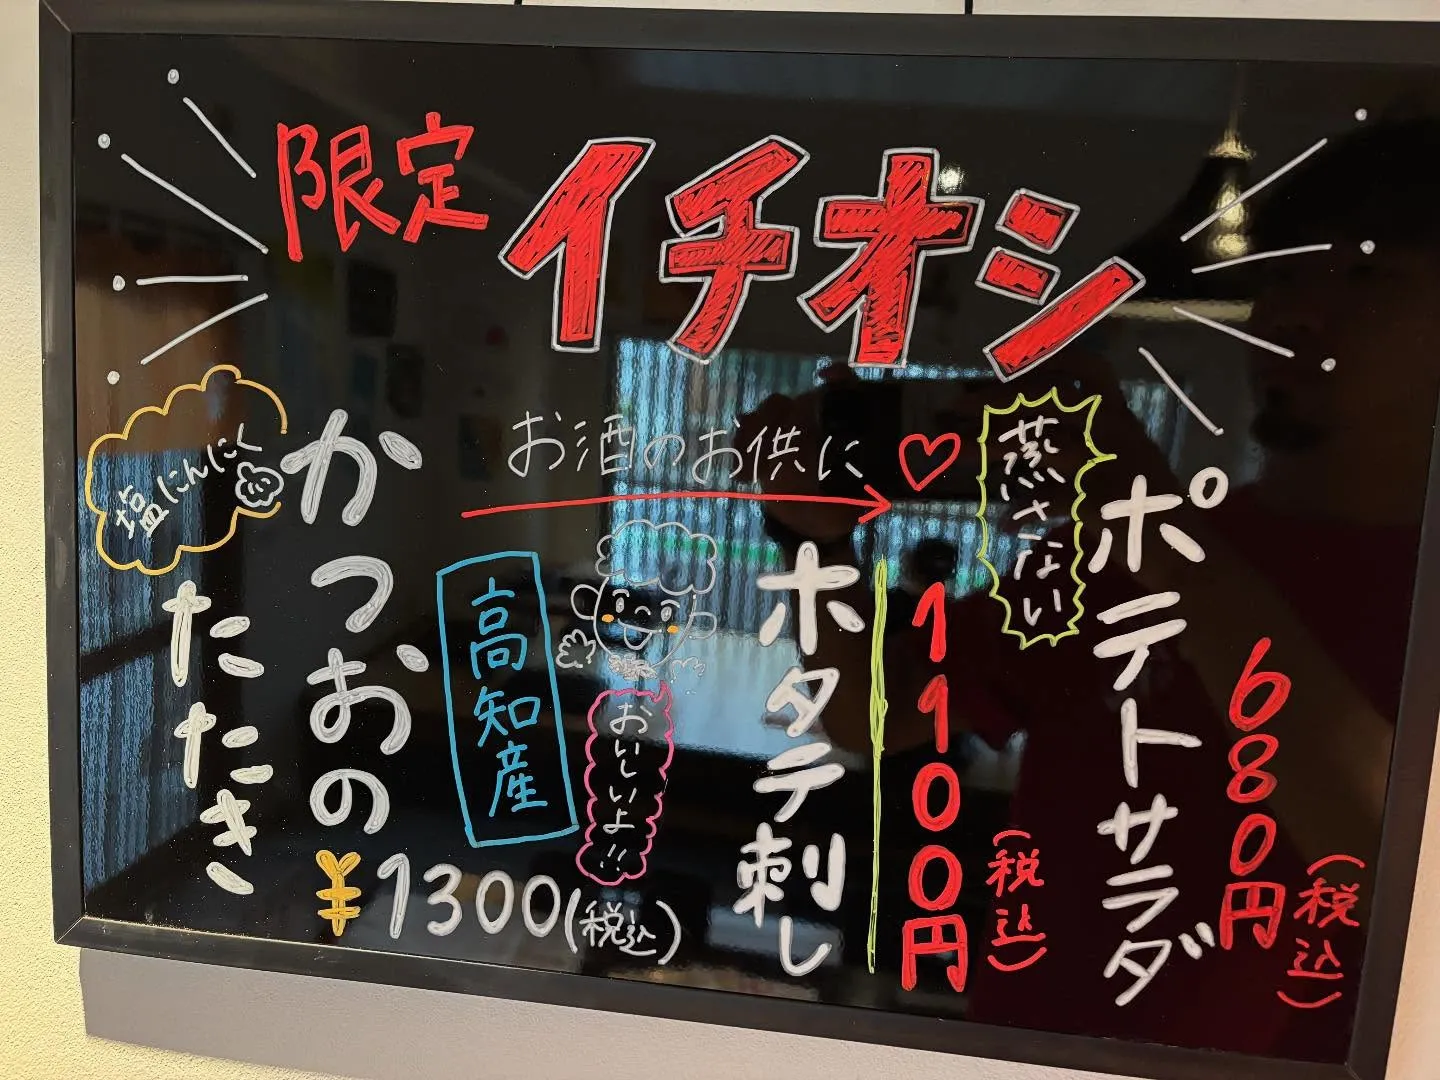 限定 イチオシ
お酒のお供に
蒸さない
ポテトサラダ
680円
(税込)
ホタテ刺し
1100円
(税込)
おいしいよ!!
高知産
塩にんにく
かつおの
たたき
¥1300(税込)